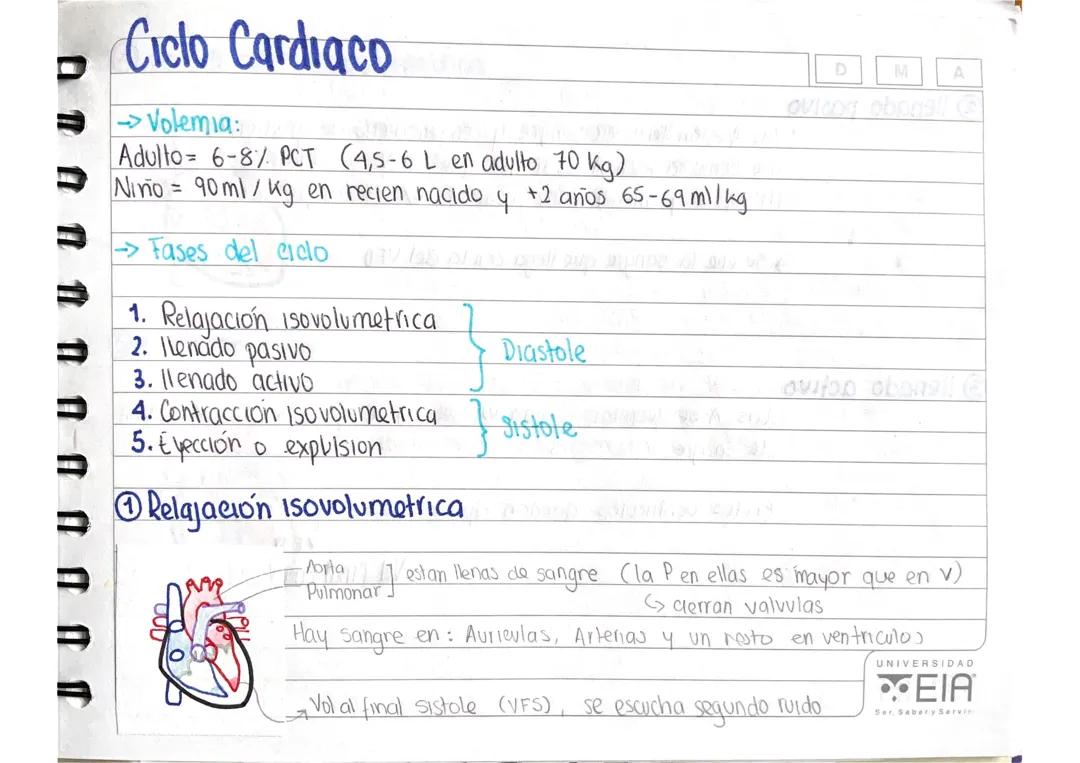 Ciclo Cardiaco
D M A
→ Volemia:
Adulto = 6-8% PCT (4,5-6 L en adulto 70 Kg)
Niño = 90 ml / Kg en recien nacido y +2 años 65-69 ml/kg
→ Fases del ciclo
1. Relajación isovolumetrica
2. llenado pasivo
3. llenado activo
Diastole
4. Contracción isovolumetrica
5. Eyección o expulsion
Sistole
① Relajación isovolumetrica
Aorta
Pulmonar
estan llenas de sangre (la P en ellas es mayor que en V)
↳ cierran valvulas
Hay sangre en: Auriculas, Arterias y un resto en ventriculos
Vol al final sistole (VFS), se escucha segundo ruido
UNIVERSIDAD
EIA
Ser, Saber y Servir